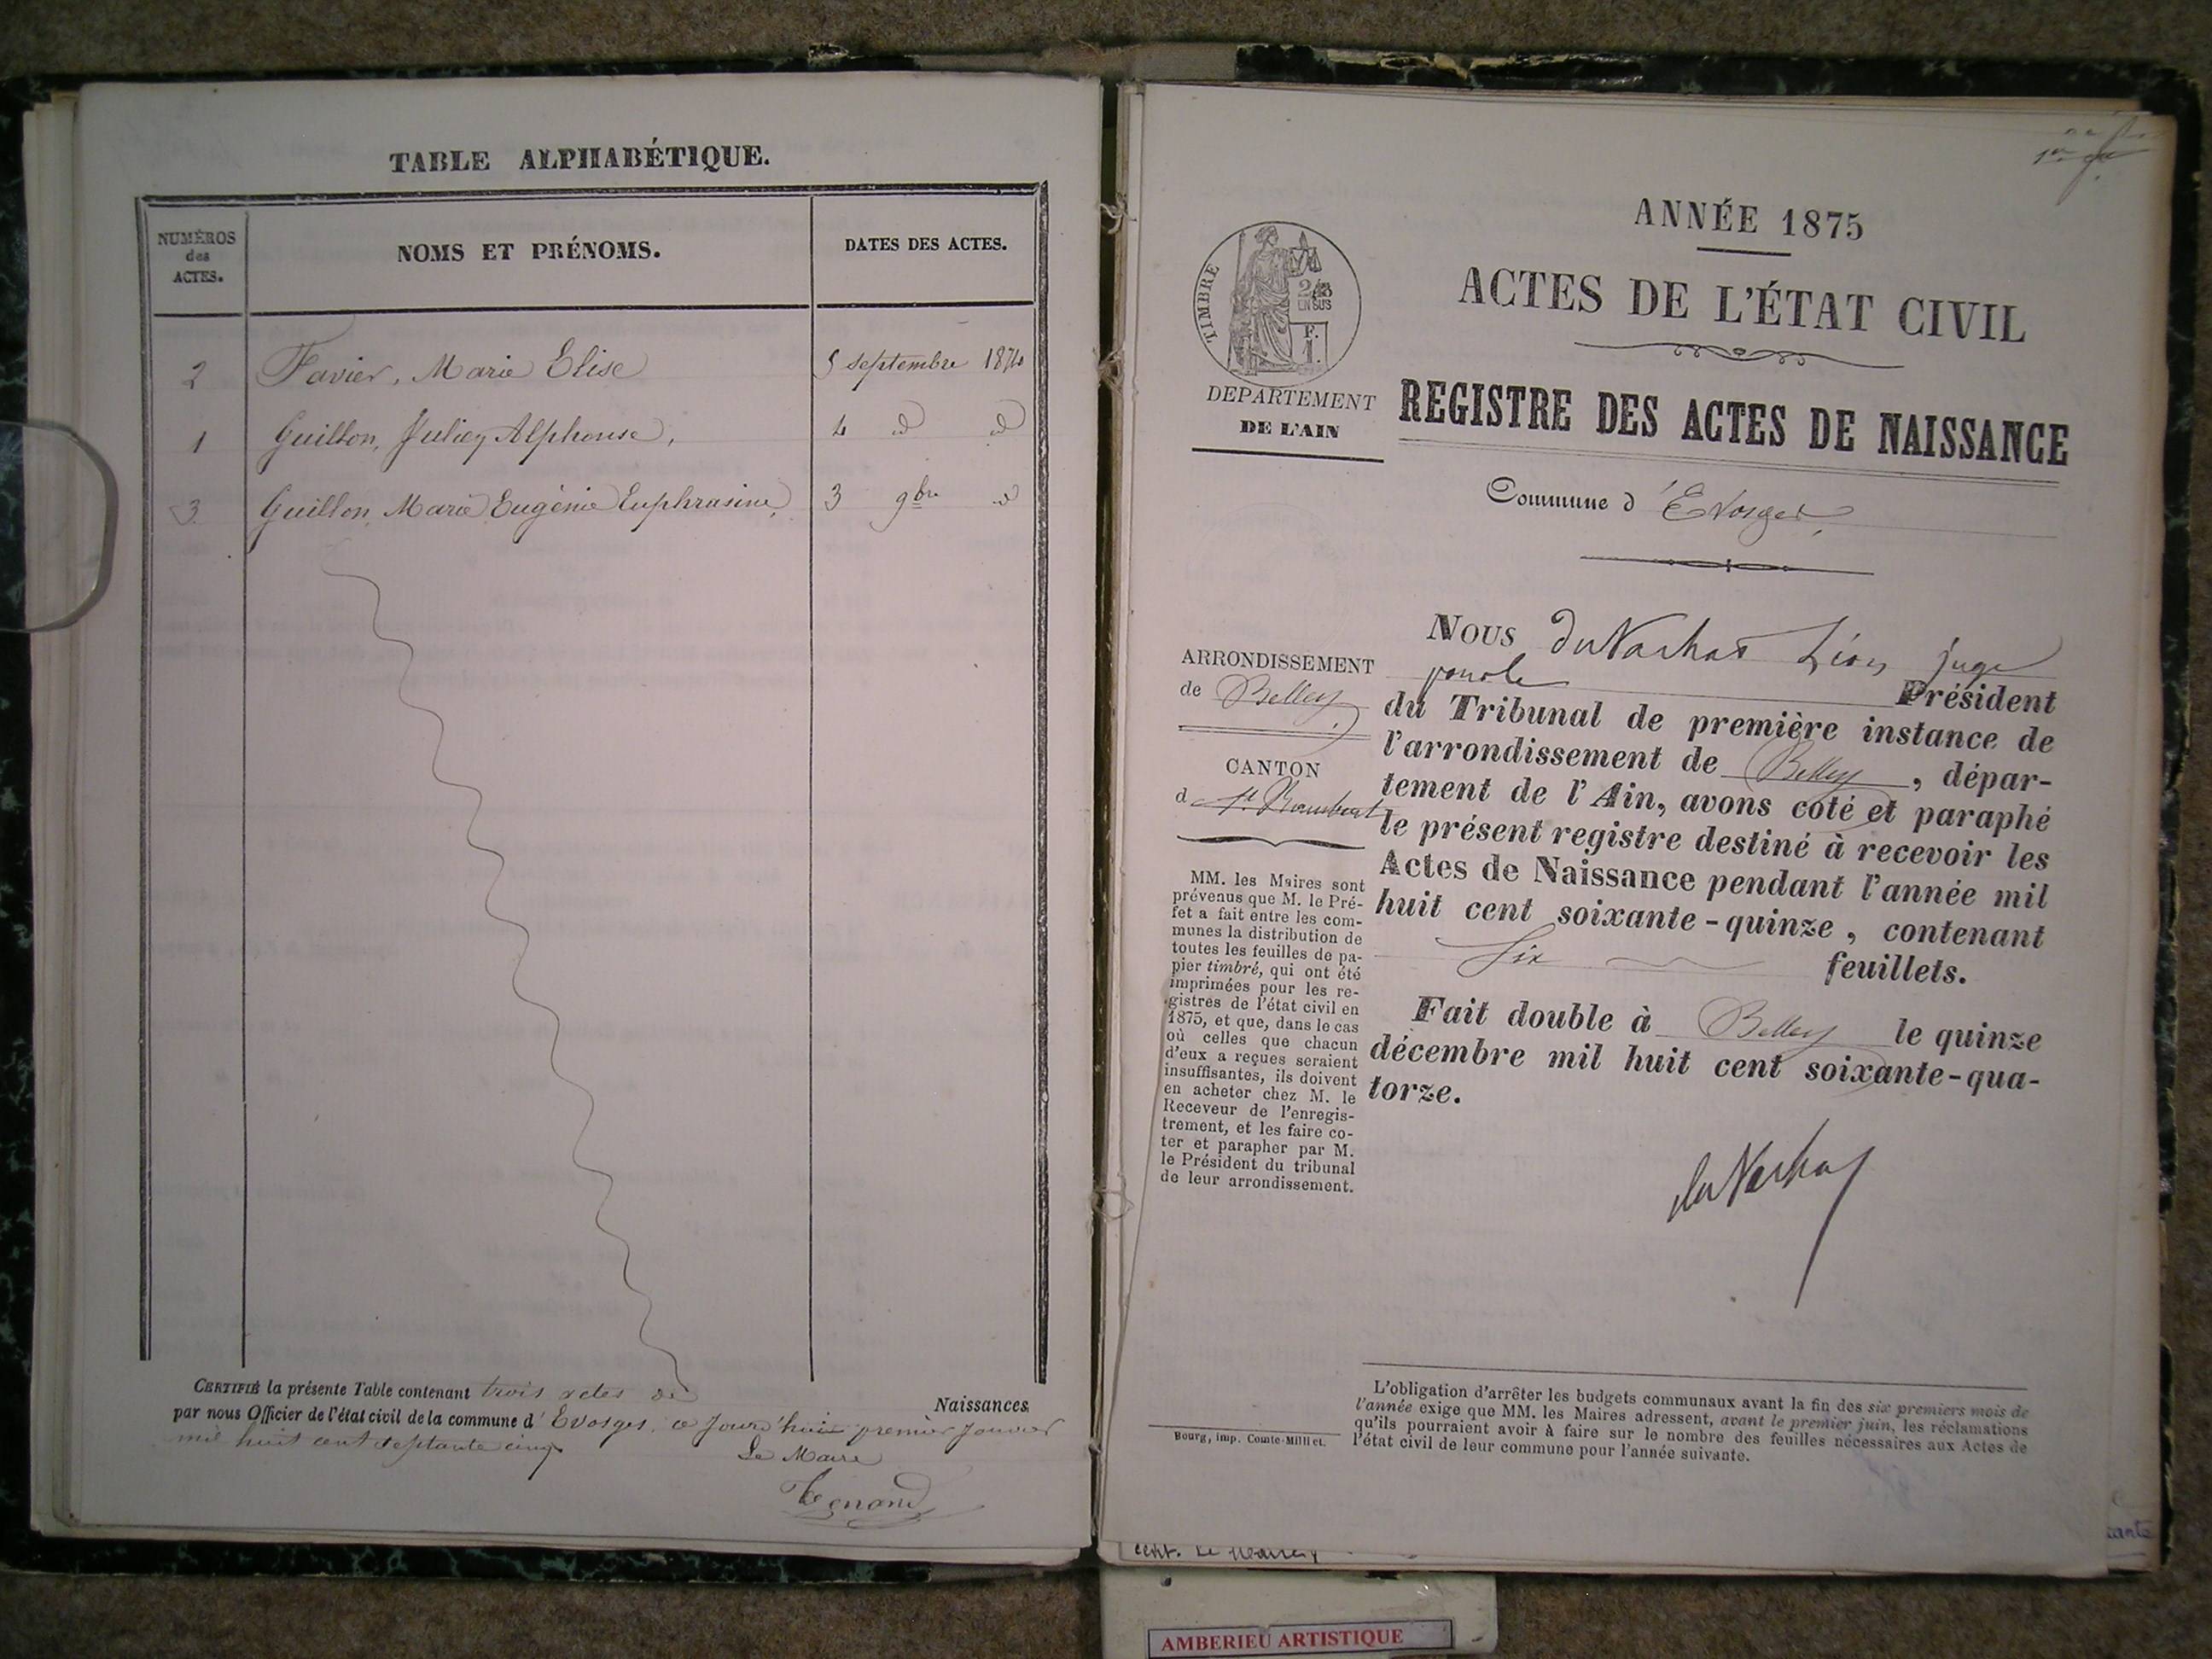 TABLE ALPHABÉTIQUE.
NUMÉROS
des
ACTES.
NOMS ET PRÉNOMS.
DATES DES ACTES.
2 Favier, Marie Elise 5 septembre 1874
1 Guillon, Julien Alphonse, 4 d d
3 Guillon Marie Eugénie Euphrasine, 3 9bre d
CERTIFIÉ la présente Table contenant trois actes de Naissances
par nous Officier de l'état civil de la commune d'Evosges, ce jourd'hui premier Janvier
mil huit cent septante cinq
Le Maire
ANNÉE 1875
ACTES DE L'ÉTAT CIVIL
TIMBRE
2/10
EN SUS
F.
1.
DEPARTEMENT
DE L'AIN
REGISTRE DES ACTES DE NAISSANCE
Commune d'Evosges
ARRONDISSEMENT
de Belley
CANTON
d St Rambert
MM. les Maires sont
prévenus que M. le Pré-
fet a fait entre les com-
munes la distribution de
toutes les feuilles de pa-
pier timbré, qui ont été
imprimées pour les re-
gistres de l'état civil en
1875, et que, dans le cas
où celles que chacun
d'eux a reçues seraient
insuffisantes, ils doivent
en acheter chez M. le
Receveur de l'enregis-
trement, et les faire co-
ter et parapher par M.
le Président du tribunal
de leur arrondissement.
Nous Léon juge
pour le Président
du Tribunal de première instance de
l'arrondissement de Belley, dépar-
tement de l'Ain, avons coté et paraphé
le présent registre destiné à recevoir les
Actes de Naissance pendant l'année mil
huit cent soixante-quinze, contenant
Six feuillets.
Fait double à Belley le quinze
décembre mil huit cent soixante-qua-
torze.
Bourg, imp. Comte-Milliet.
L'obligation d'arrêter les budgets communaux avant la fin des six premiers mois de
l'année exige que MM. les Maires adressent, avant le premier juin, les réclamations
qu'ils pourraient avoir à faire sur le nombre des feuilles nécessaires aux Actes de
l'état civil de leur commune pour l'année suivante.
AMBERIEU ARTISTIQUE